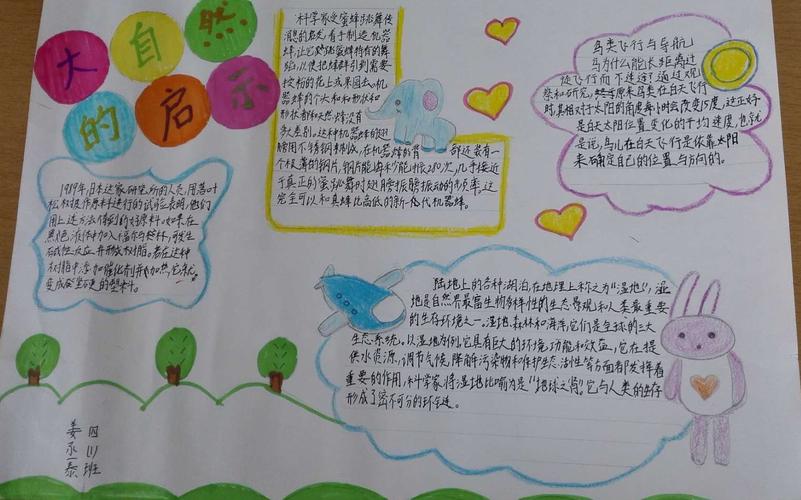 大自然
的启示
科学家受蜜蜂跳舞传
消息的启发,着手制造机器
蜂,让它跳蜜蜂特有的舞
班,以便把蜂群引到需要
授粉的花上去采国去。机
器蜂的个头和和形状和
形状都和天然蜂没有
多大差别。这种机器蜂的翅
膀用不锈钢制成,在机器蜂的背部边装有一
个极薄的钢片,钢片能填秒能冲振250次,几乎接近
于真正的蜜蜂舞时翅膀振膀振动的频率。这
完全可以和真蜂比高低的新一代代机器蜂。
鸟类飞行与导航
鸟为什么能长距离过
徙飞行而不迷途?通过观
察和研究,原来鸟类在白天飞行
时,其相对于太阳的角度每小时会改变15度,这正好
是白天太阳位置变化的平均速度,也就
是说,鸟儿在白天飞行是依靠太阳
来确定自己的位置与方向的。
1989年,日本这家研究所的人员,用落叶
松树皮作原料进行的试验表明,他们
用上述方法得到的
黑色液体中加入福尔马林,可发生
碱性反应并形成树脂。若在这种
树脂中添加催化剂并加热,它就
变成坚硬的塑料。
陆地上的各种湖泊,在地理上称之为“湿地”,湿
地是自然界最富生物多样性的生态景观和人类最重要
的生存环境之一。湿地、森林和海洋,它们是全球的三大
生态系统。以湿地为例,它具有巨大的环境功能和效益,它在提
供水资源,调节气候,降解污染物和保护生态活性等方面都发挥着
重要的作用,科学家将湿地比喻为是“地球之肾”。它与人类的生存
形成了密不可分的环链。
四(1)班
姜承泰